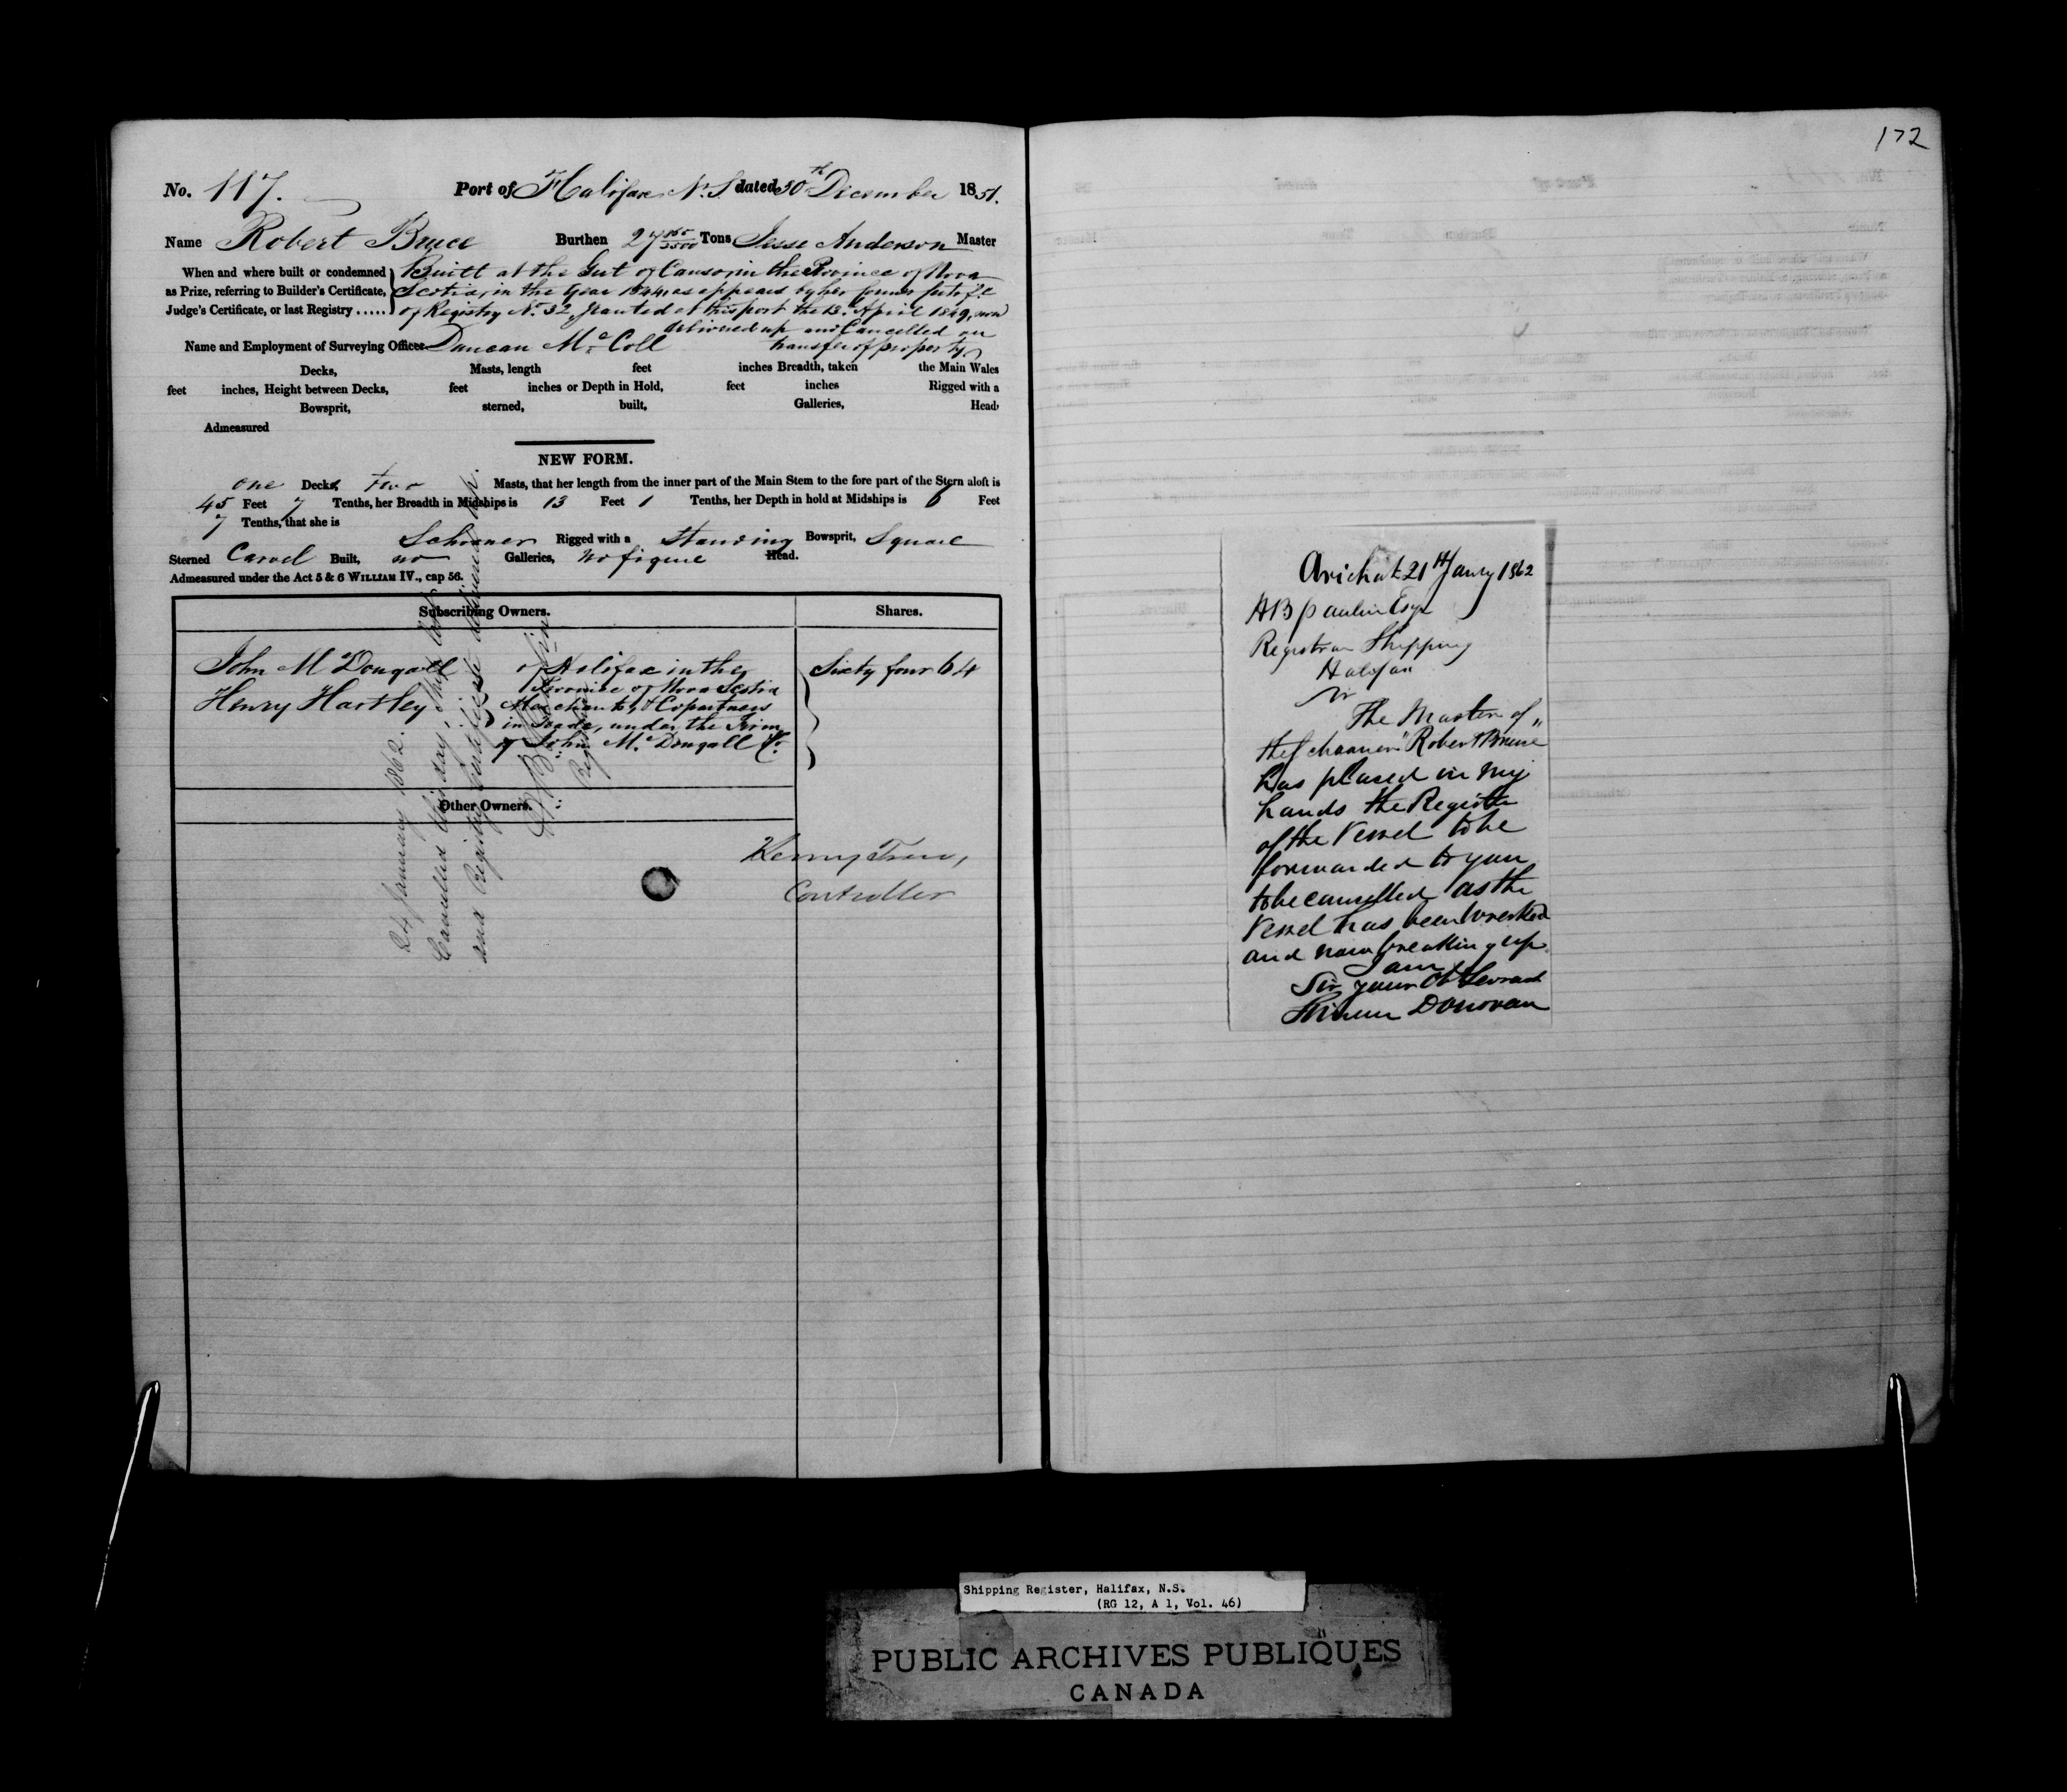 No. 117. Port of Halifax N.S. dated 30th December 1851.
Name Robert Bruce Burthen 27 Tons Jesse Anderson Master
When and where built or condemned Built at the Gut of Canso, in the Province of Nova
as Prize, referring to Builder's Certificate, Scotia, in the Year 1844, as appears by her former
Judge's Certificate, or last Registry ..... of Registry No. 32, Granted at this port the 13. April 1849, now
delivered up and Cancelled on
Name and Employment of Surveying Officer Duncan McColl transfer of property
Decks, Masts, length feet inches Breadth, taken the Main Wales
feet inches, Height between Decks, feet inches or Depth in Hold, feet inches Rigged with a
Bowsprit, sterned, built, Galleries, Head,
Admeasured
NEW FORM.
one Deck, two Masts, that her length from the inner part of the Main Stem to the fore part of the Stern aloft is
45 Feet 7 Tenths, her Breadth in Midships is 13 Feet 1 Tenths, her Depth in hold at Midships is 6 Feet
7 Tenths, that she is
Schooner Rigged with a Standing Bowsprit, Square
Sterned Carvel Built, no Galleries, no figure Head.
Admeasured under the Act 5 & 6 WILLIAM IV., cap 56.
Subscribing Owners. Shares.
John McDougall of Halifax in the Sixty four 64
Province of Nova Scotia
Henry Hartley Merchants & Copartners
in Trade, under the Firm
of John McDougall & Co.
Other Owners.
Henry Trew,
Controller
24 January 1862.
Cancelled this day, Ship lost
and Registry Certificate delivered up.
Registrar
172
Arichat 21st Jany 1862
HB Paulin Esqr
Registrar Shipping
Halifax
Sir
The Master of
the Schooner "Robert Bruce"
has placed in my
hands the Register
of the Vessel to be
forwarded to you
to be cancelled as the
Vessel has been wrecked
and now breaking up.
I am
Sir your Obt Servant
Donovan
Shipping Register, Halifax, N.S.
(RG 12, A 1, Vol. 46)
PUBLIC ARCHIVES PUBLIQUES
CANADA